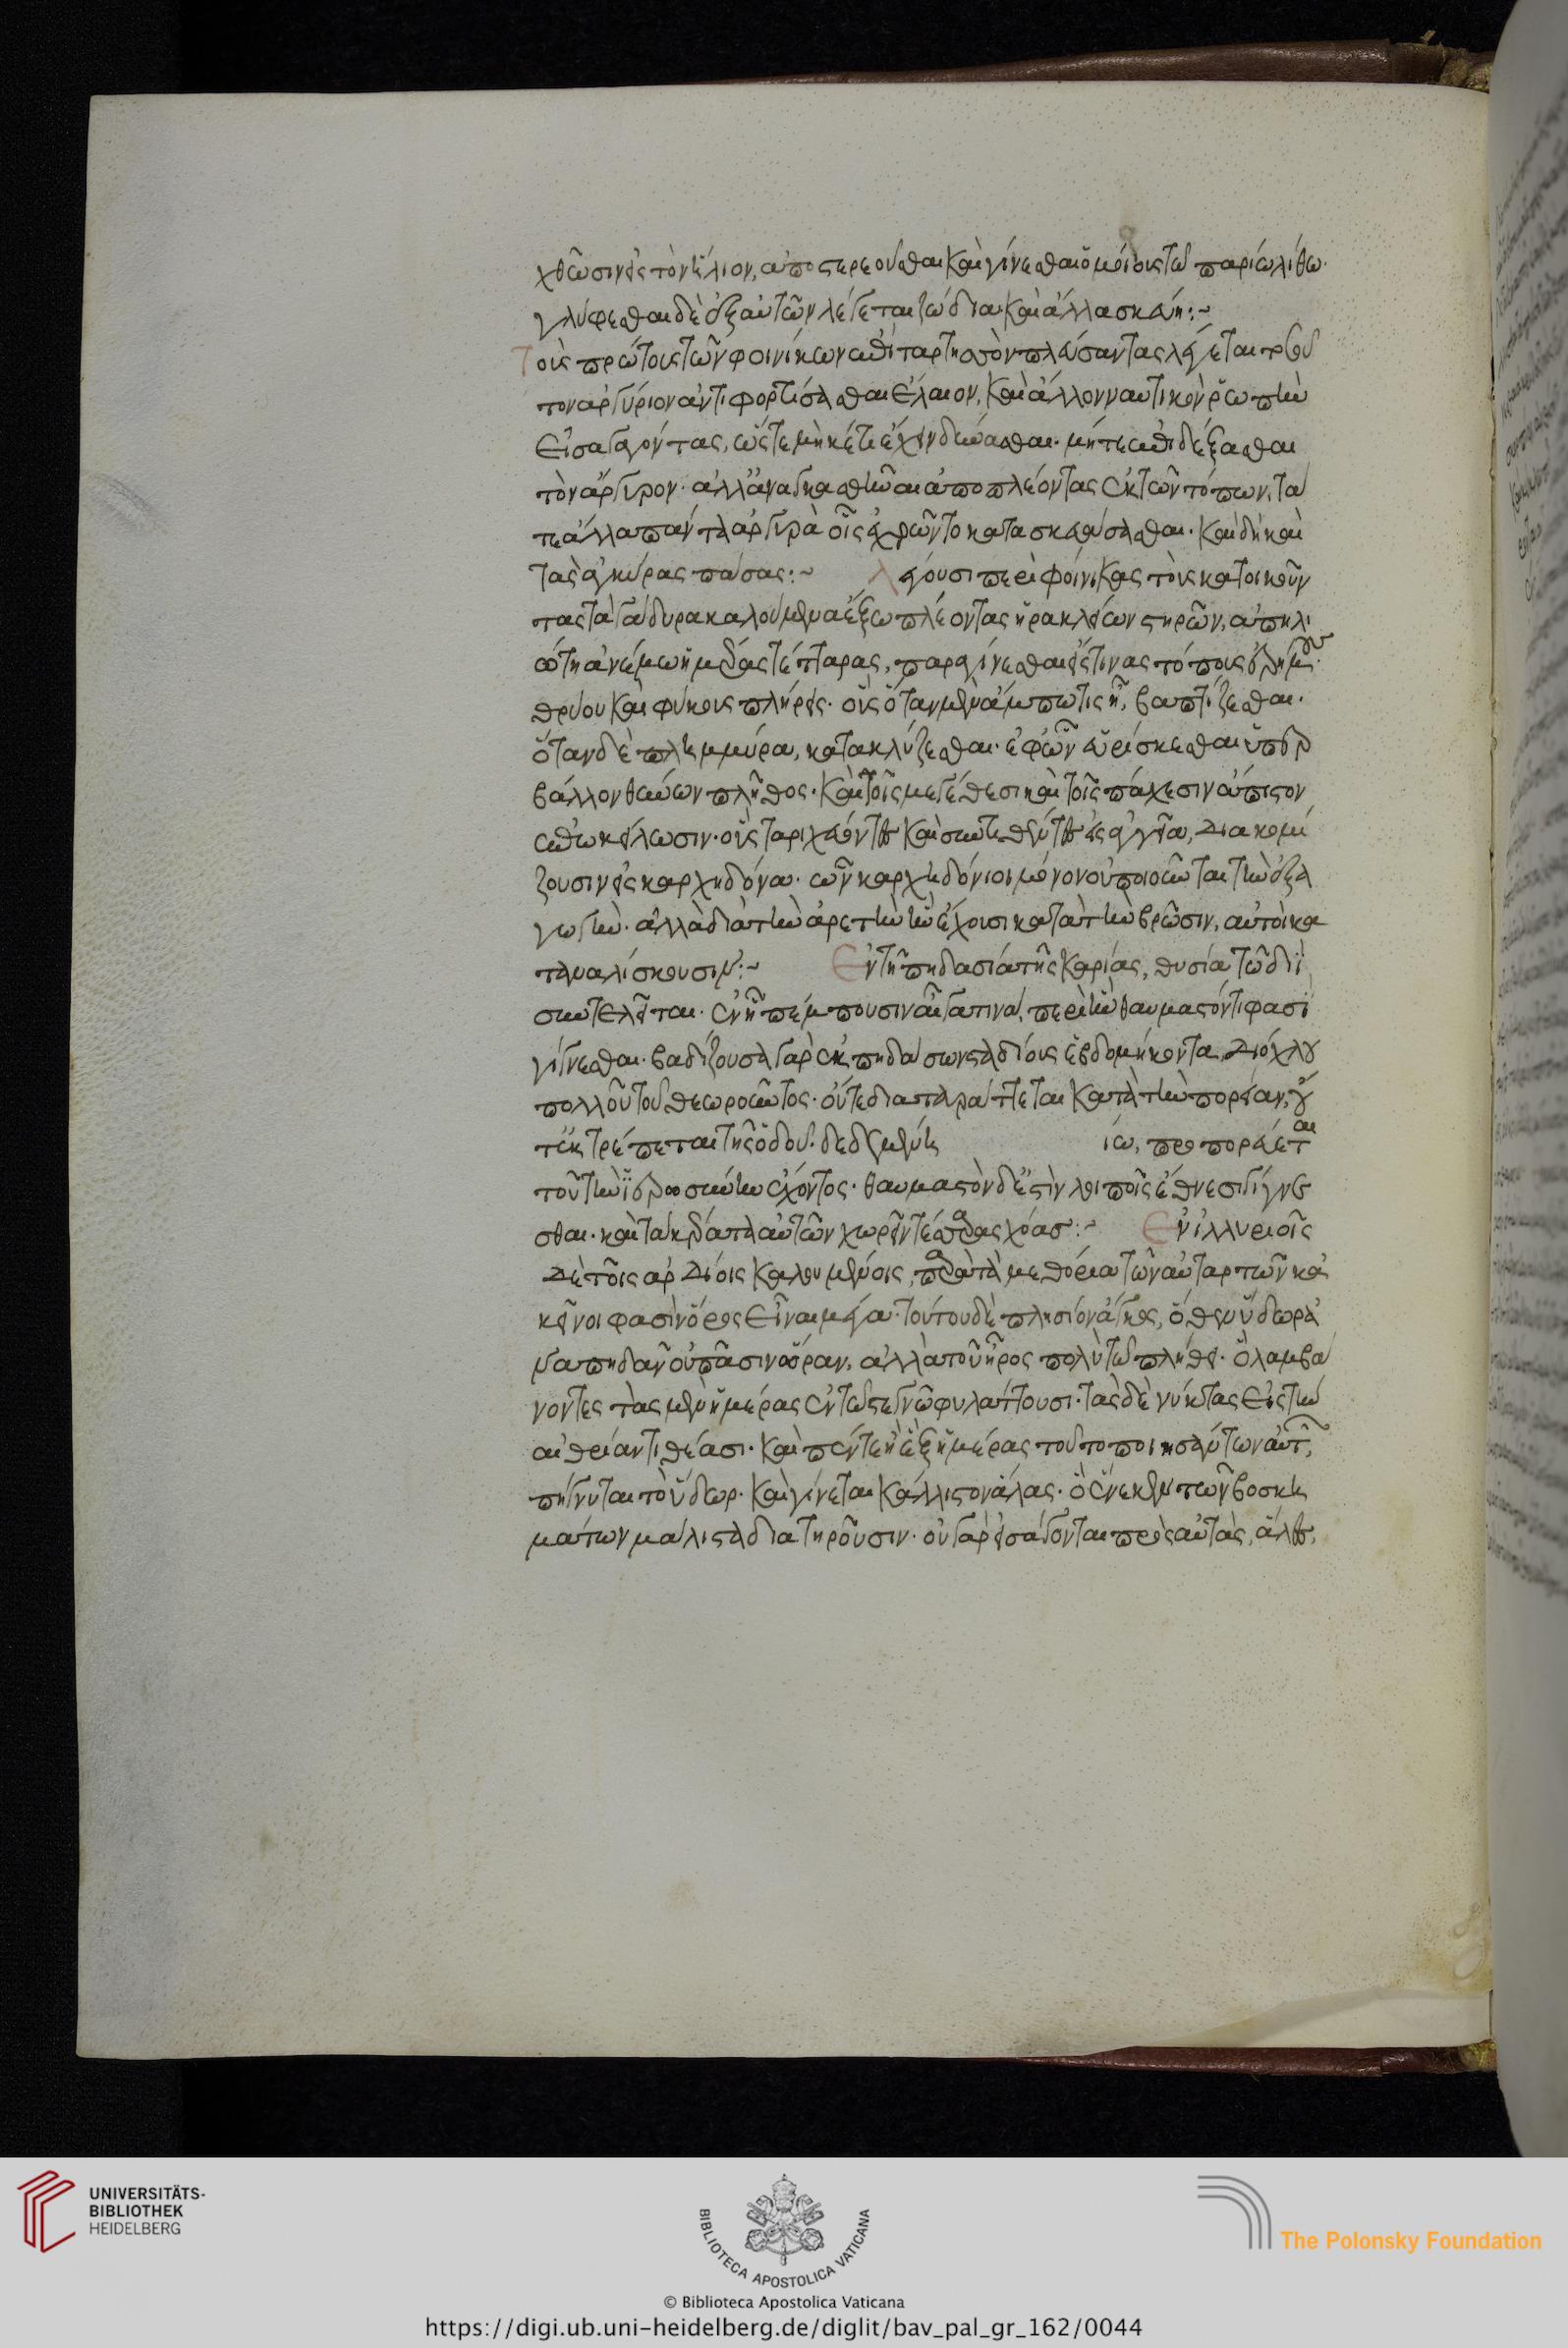 χθῶσιν εἰς τὸν ἥλιον, ἀποστερεοῦσθαι καὶ γίνεσθαι ὁμοίους τῶ παρίω λίθω·
γλύφεσθαι δὲ ἐξ αὐτῶν λέγεται ζώδια καὶ ἄλλα σκεύη:~
Τοὺς πρώτους τῶν φοινίκων ἐπὶ ταρτησὸν πλεύσαντας λέγεται τοσοῦ
τον ἀργύριον ἀντιφορτίσασθαι ἔλαιον, καὶ ἄλλον ναυτικὸν ῥωπὴν
εἰσαγαγόντας, ὥστε μηκέτι ἔχειν δύνασθαι· μήτε ἐπιδέξασθαι
τὸν ἄργυρον· ἀλλ' ἀναγκασθῆναι ἀποπλέοντας ἐκ τῶν τόπων, τά
τε ἄλλα πάντα ἀργυρᾶ οἷς ἐχρῶντο κατασκευάσασθαι· καὶ δὴ καὶ
τὰς ἀγκύρας πάσας:~ Λέγουσι περὶ φοίνικας τοὺς κατοικοῦν
τας τὰ γάδυρα καλούμενα ἔξω πλέοντας ἡρακλείων στηρῶν, ἀπηλι
ώτη ἀνέμω ἡμέρας τέτταρας, παραγίνεσθαι εἴς τινας τόπους ἐρήμους·
θρύου καὶ φύκους πλήρεις· οὓς ὅταν μὲν ἄμπωτις ᾖ, βαπτίζεσθαι·
ὅταν δὲ πλημμύρα, κατακλύζεσθαι· ἐφ' ὧν εὑρίσκεσθαι ὑπερ
βάλλον θύννων πλῆθος· καὶ τοῖς μεγέθεσι καὶ τοῖς πάχεσιν ἄπιστον
ἐπ' ὠκείλωσιν· οὓς ταριχεύοντες καὶ συντιθέντες εἰς ἀγγεῖα, διακομί
ζουσιν εἰς καρχηδόνα· ὧν καρχηδόνιοι μόνον οὐ ποιοῦνται τὴν ἐξα
γωγὴν· ἀλλὰ διὰ τὴν ἀρετὴν ἣν ἔχουσι κατὰ τὴν βρῶσιν, αὐτοὶ κα
ταναλίσκουσιν:~ Ἐν τῆ πηδασία τῆς καρίας, θυσία τῶ διῒ
συντελεῖται· ἐν ᾗ πέμπουσιν αἶγά τινα, περὶ ἣν θαυμαστόν τι φασὶ
γίγνεσθαι· βαδίζουσα γὰρ ἐκ πηδάσων σταδίους ἑβδομήκοντα, δι' ὄχλου
πολλοῦ τοῦ θεωροῦντος· οὔτε διαταράττεται κατὰ τὴν πορείαν, οὔ
τ' ἐκτρέπεται τῆς ὁδοῦ· δεδεμένη ίω, προπορεύεται
τοῦ τὴν ἱερωσύνην ἔχοντος· θαυμαστὸν δ' ἐστὶν λοιποῖς ἔθνεσι γίγνε
σθαι· καὶ τὰ κέρατα αὐτῶν χωρεῖν τέσσαρας χόας:~ Ἐν ἰλλυριοῖς
δὲ τοῖς ἀρδίοις καλουμένοις, παρὰ τὰ μεθόρια τῶν αὐταρτῶν κἀ
κεῖνοι φασὶν ὄρος εἶναι μέγα· τούτου δὲ πλησίον ἄγκος, ὅθεν ὕδωρ ἀ
ναπηδᾶν οὐ πᾶσιν ὥραν, ἀλλὰ τοῦ ἦρος πολὺ τῶ πλήθει· ὃ λαμβά
νοντες τὰς μὲν ἡμέρας ἐν τῶ στεγνῶ φυλάττουσι· τὰς δὲ νύκτας εἰς τὴν
αἰθρίαν τιθέασι· καὶ πέντε ἢ ἓξ ἡμέρας τοῦτο ποιησάντων αὐτῶν,
πήγνυται τὸ ὕδωρ· καὶ γίνεται κάλλιστον ἅλας· ὃ ἕνεκεν τῶν βοσκη
μάτων μάλιστα διατηροῦσιν· οὐ γὰρ εἰσάγονται πρὸς αὐτὰς, ἅλες,
UNIVERSITÄTS-
BIBLIOTHEK
HEIDELBERG
BIBLIOTECA APOSTOLICA VATICANA
The Polonsky Foundation
© Biblioteca Apostolica Vaticana
https://digi.ub.uni-heidelberg.de/diglit/bav_pal_gr_162/0044